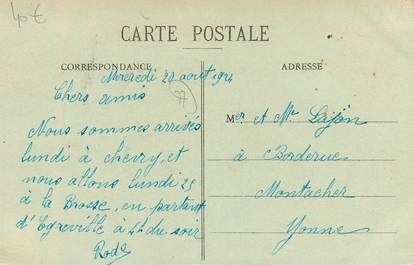 40€
CARTE POSTALE
CORRESPONDANCE
ADRESSE
Mercredi 20 août 1924
77
Chers amis
Nous sommes arrivés
lundi à chevry, et
nous allons lundi 25
à la Brosse, en partant
d'Egreville à 4h du soir
Rode
Mer et Mme Lajon
à Borderue
Montacher
Yonne